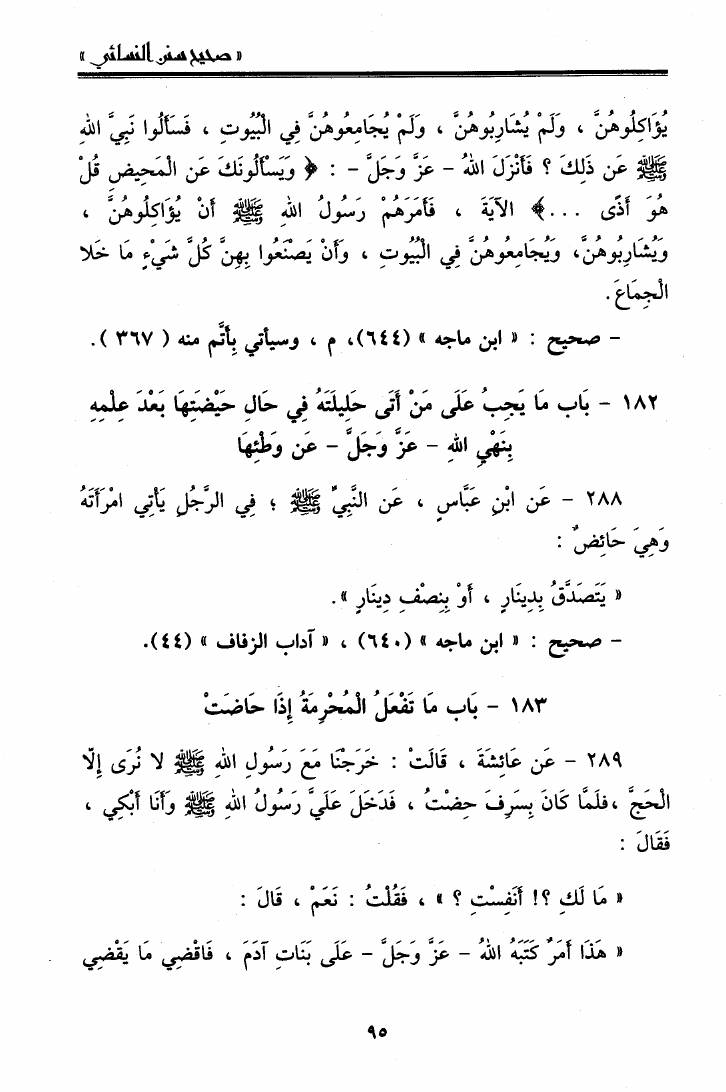 « صحيح سنن النسائي »
يُؤَاكِلُوهُنَّ ، وَلَمْ يُشَارِبُوهُنَّ ، وَلَمْ يُجَامِعُوهُنَّ فِي الْبُيُوتِ ، فَسَأَلُوا نَبِيَّ اللهِ
ﷺ عَن ذَلِكَ ؟ فَأَنْزَلَ اللهُ - عَزَّ وَجَلَّ - : ﴿ وَيَسْأَلُونَكَ عَن الْمَحِيضِ قُلْ
هُوَ أَذًى ...﴾ الآيَةَ ، فَأَمَرَهُمْ رَسُولُ اللهِ ﷺ أَنْ يُؤَاكِلُوهُنَّ ،
وَيُشَارِبُوهُنَّ، وَيُجَامِعُوهُنَّ فِي الْبُيُوتِ ، وَأَنْ يَصْنَعُوا بِهِنَّ كُلَّ شَيْءٍ مَا خَلا
الْجِمَاعَ.
- صحيح : « ابن ماجه » (٦٤٤)، م ، وسيأتي بِأَتَّم منه ( ٣٦٧ ).
١٨٢ - بَاب مَا يَجِبُ عَلَى مَنْ أَتَى حَلِيلَتَهُ فِي حَالِ حَيْضَتِهَا بَعْدَ عِلْمِهِ
بِنَهْيِ اللهِ - عَزَّ وَجَلَّ - عَن وَطْئِهَا
٢٨٨ - عَن ابْنِ عَبَّاسٍ ، عَن النَّبِيِّ ﷺ ؛ فِي الرَّجُلِ يَأْتِي امْرَأَتَهُ
وَهِيَ حَائِضٌ :
« يَتَصَدَّقُ بِدِينَارٍ ، أَوْ بِنِصْفِ دِينَارٍ ».
- صحيح : « ابن ماجه » (٦٤٠) ، « آداب الزفاف » (٤٤).
١٨٣ - بَاب مَا تَفْعَلُ الْمُحْرِمَةُ إِذَا حَاضَتْ
٢٨٩ - عَن عَائِشَةَ ، قَالَتْ : خَرَجْنَا مَعَ رَسُولِ اللهِ ﷺ لا نُرَى إِلّا
الْحَجَّ ،فَلَمَّا كَانَ بِسَرِفَ حِضْتُ ، فَدَخَلَ عَلَيَّ رَسُولُ اللهِ ﷺ وَأَنَا أَبْكِي ،
فَقَالَ :
« مَا لَكِ ؟! أَنَفِسْتِ ؟ » ، فَقُلْتُ : نَعَمْ ، قَالَ :
« هَذَا أَمْرٌ كَتَبَهُ اللهُ - عَزَّ وَجَلَّ - عَلَى بَنَاتِ آدَمَ ، فَاقْضِي مَا يَقْضِي
٩٥